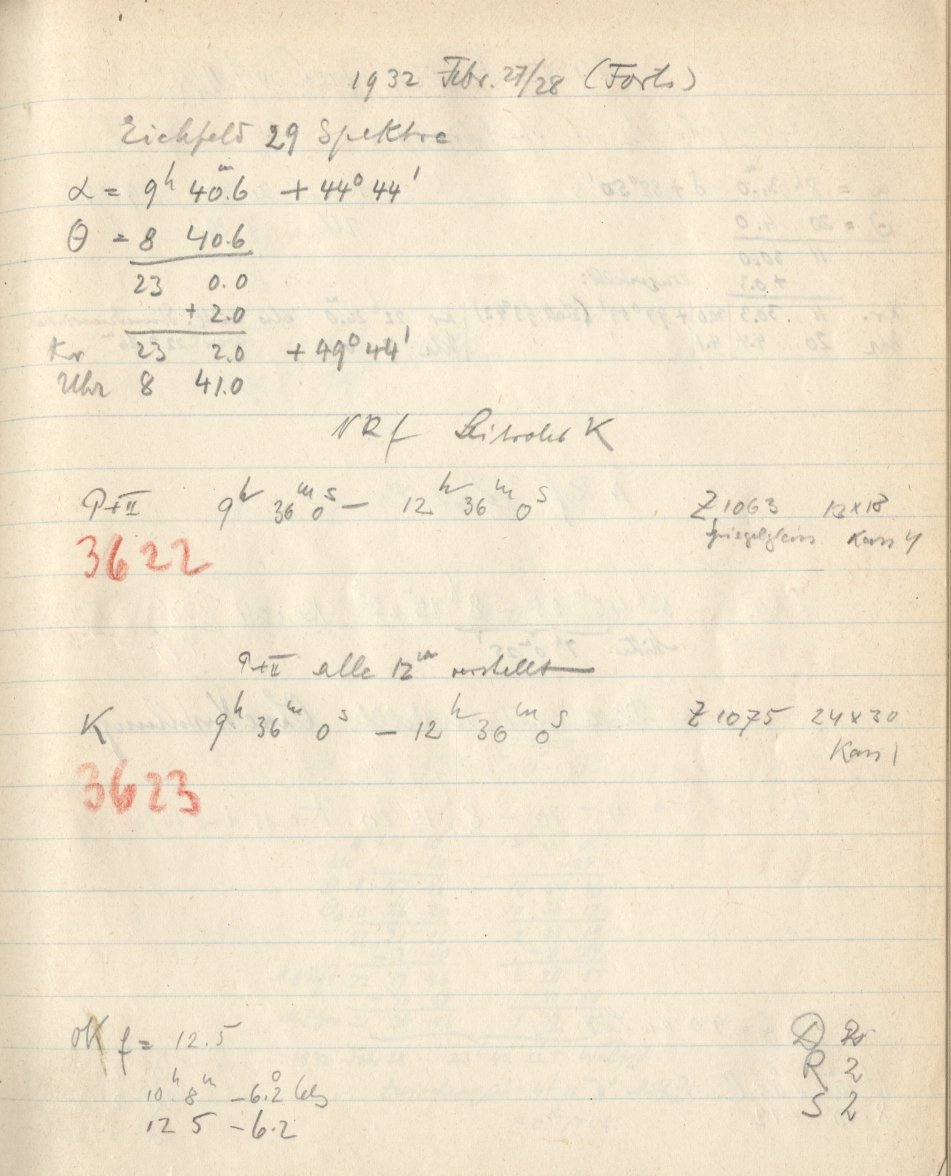 1932 Febr. 27/28 (Forts)
Eichfeld 29 Spektra
α = 9h 40m.6 + 44° 44'
θ = 8 40.6
23 0.0
+ 2.0
Kr 23 2.0 + 49° 44'
Uhr 8 41.0
NRf K
P+II 9h 36m 0s — 12h 36m 0s Z 1063 13x18
Spiegelglas Kass 4
3622
P+II alle 12m verstellt
K 9h 36m 0s — 12h 36m 0s Z 1075 24x30
Kass 1
3623
OK f = 12.5
10h 8m - 6.2° Cels
12 5 - 6.2
R 2
S 2